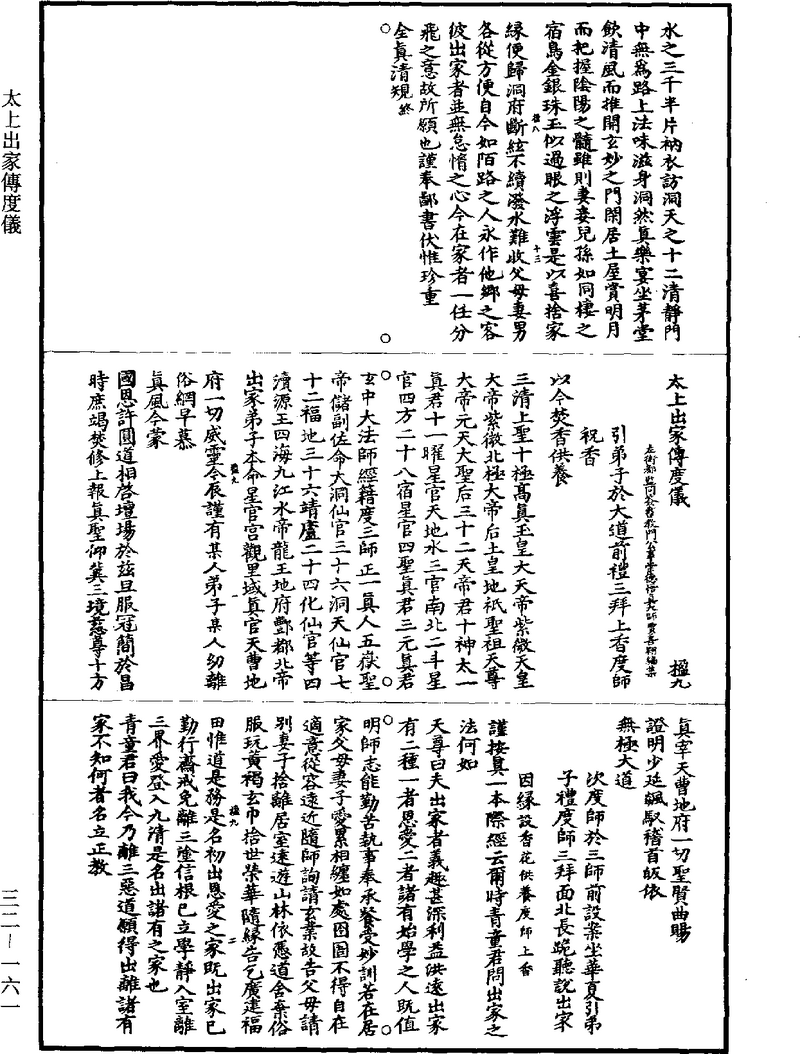 太上出家傳度儀
三二—一六一
水之三千半片衲衣訪洞天之十二清靜門
中無爲路上法味滋身洞然眞樂宴坐茅堂
飲清風而推開玄妙之門閑居土屋賞明月
而把握陰陽之髓雖則妻妾兒孫如同棲之
宿鳥金銀珠玉似過眼之浮雲是以喜捨家
楹八
十三
緣便歸洞府斷絃不續潑水難收父母妻男
各從方便自今如陌路之人永作他鄉之客
彼出家者並無怠惰之心今在家者一任分
飛之意故所願也謹奉鄙書伏惟珍重
全眞清規終
太上出家傳度儀
楹九
左街都監同簽書教門公事崇德悟眞大師賈善翔編集
引弟子於大道前禮三拜上香度師
祝香
以今焚香供養
三清上聖十極高眞玉皇大天帝紫微天皇
大帝紫微北極大帝后土皇地祇聖祖天尊
大帝元天大聖后三十二天帝君十神太一
眞君十一曜星官天地水三官南北二斗星
官四方二十八宿星官四聖眞君三元眞君
玄中大法師經籍度三師正一眞人五嶽聖
帝儲副佐命大洞仙官三十六洞天仙官七
十二福地三十六靖廬二十四化仙官等四
瀆源王四海九江水帝龍王地府酆都北帝
出家弟子本命星官宮觀里域眞官天曹地
楹九
一
府一切威靈今辰謹有某人弟子某人幼離
俗網早慕
眞風今蒙
國恩許圓道相啓壇場於茲旦服冠簡於昌
時庶竭焚修上報眞聖仰冀三境慈尊十方
眞宰天曹地府一切聖賢曲賜
證明少延飆馭稽首皈依
無極大道
次度師於三師前設案坐華夏引弟
子禮度師三拜面北長跪聽說出家
因緣設香花供養度師上香
謹按眞一本際經云爾時青童君問出家之
法何如
天尊曰夫出家者義趣甚深利益洪遠出家
有二種一者恩愛二者諸有始學之人既值
明師志能勤苦執事奉承餐受妙訓若在居
家父母妻子愛累相纏如處囹圄不得自在
適意從容遠近隨師詢請玄業故告父母請
別妻子捨離居室遠遊山林依憑道舍棄俗
服玩黃褐玄巾捨世榮華隨緣告乞廣建福
楹九
二
田惟道是務是名初出恩愛之家既出家已
勤行齋戒免離三塗信根已立學靜入室離
三界愛登入九清是名出諸有之家也
青童君曰我今乃離三惡道願得出離諸有
家不知何者名立正教